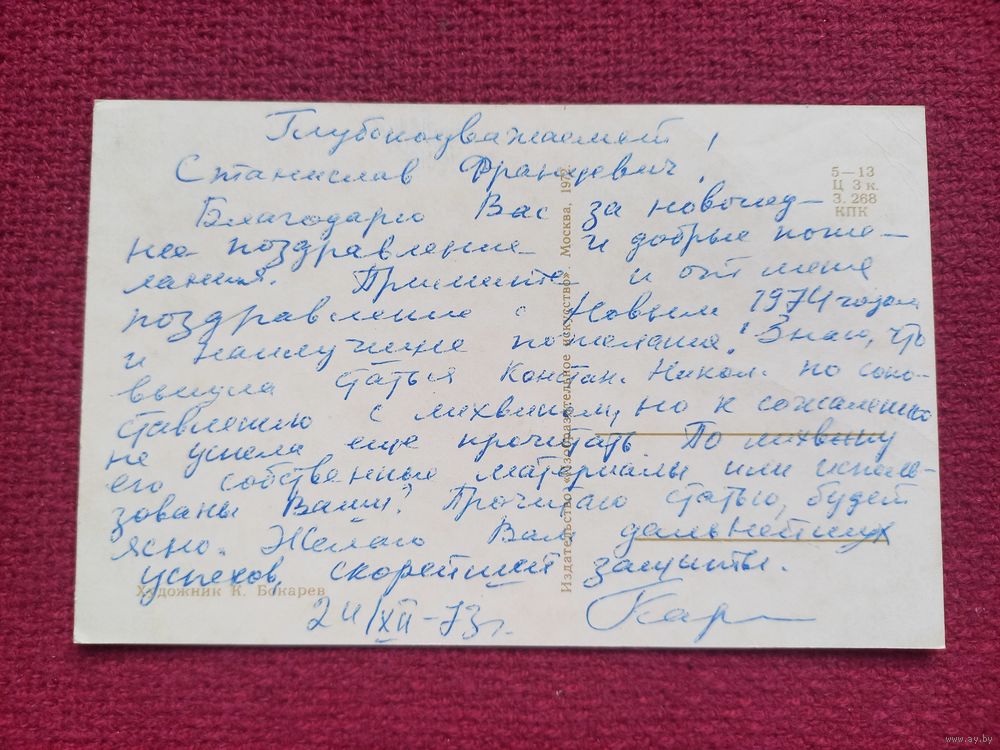 Глубокоуважаемый
Станислав Францевич!
Благодарю Вас за новогод-
нее поздравление и добрые поже-
лания. Примите и от меня
поздравление с Новым 1974 годом
и наилучшие пожелания! Знаю, что
вышла статья Констан. Никол. по сопо-
ставлению с лихвином, но к сожалению
не успела еще прочитать По лихвину
его собственные материалы или исполь-
зованы Ваши? Прочитаю статью, будет
ясно. Желаю Вам дальнейших
успехов, скорейшей защиты.
24/XII-73г.
Художник К. Бокарев
Издательство «Изобразительное искусство». Москва,
5—13
Ц 3 к.
З. 268
КПК
www.ay.by